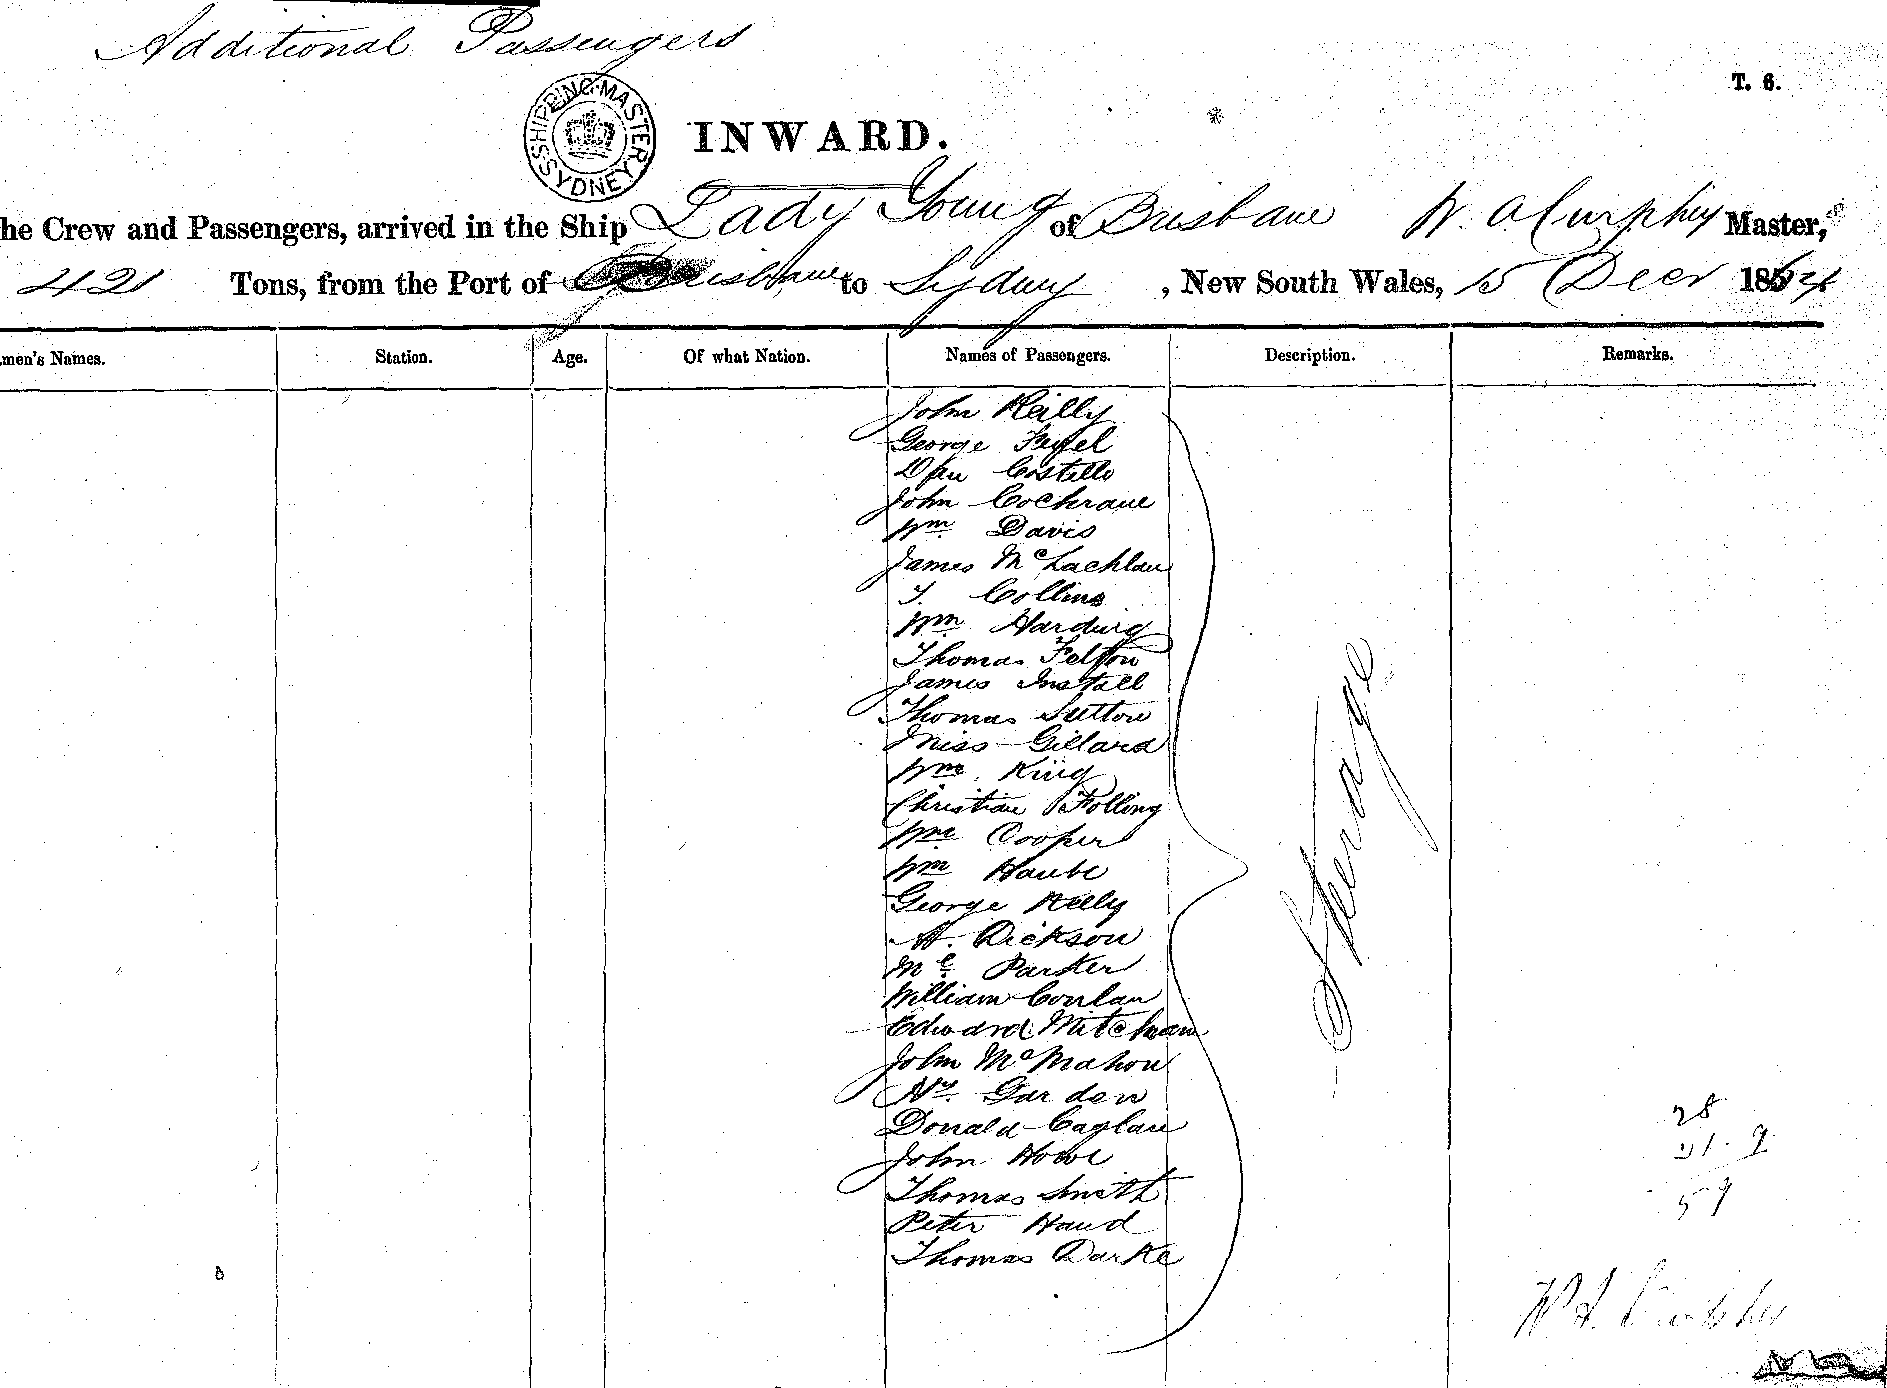 Additional Passengers
T. 6.
SHIPPING MASTER SYDNEY
INWARD.
he Crew and Passengers, arrived in the Ship Lady Young of Brisbane W. A Curphey Master,
421 Tons, from the Port of Brisbane to Sydney, New South Wales, 15 Decr 1864
men's Names. Station. Age. Of what Nation. Names of Passengers. Description. Remarks.
John Reilly
George
Costello
John Cochrane
Wm Davis
James McLachlan
T. Collins
Wm Harding
Thomas Felton
James Install
Thomas Sutton
Miss Gillard
Wm King
Christian Folling
Wm Cooper
Wm Haube
George Kelly
A. Dickson
Parker
William Conlan
Edward Mitcham
John McMahon
Hy. Garden
Donald Caglan
John Howe
Thomas Smith
Peter Hand
Thomas Darke
Steerage
28
31 . 9
59